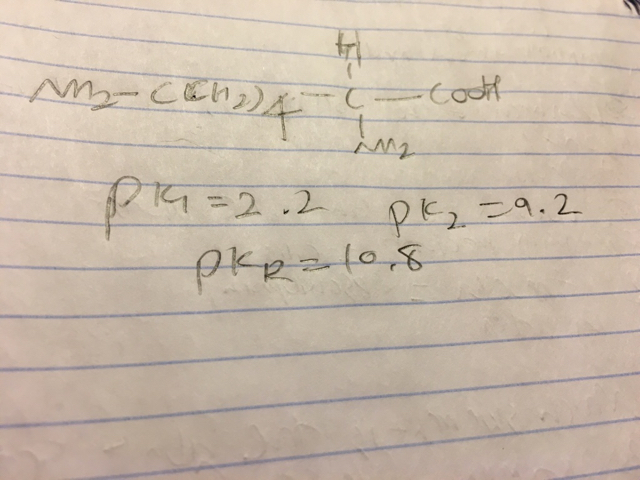 H
NH2-C(CH2)4-C-COOH
NH2
pK1=2.2 pK2=9.2
pKR=10.8